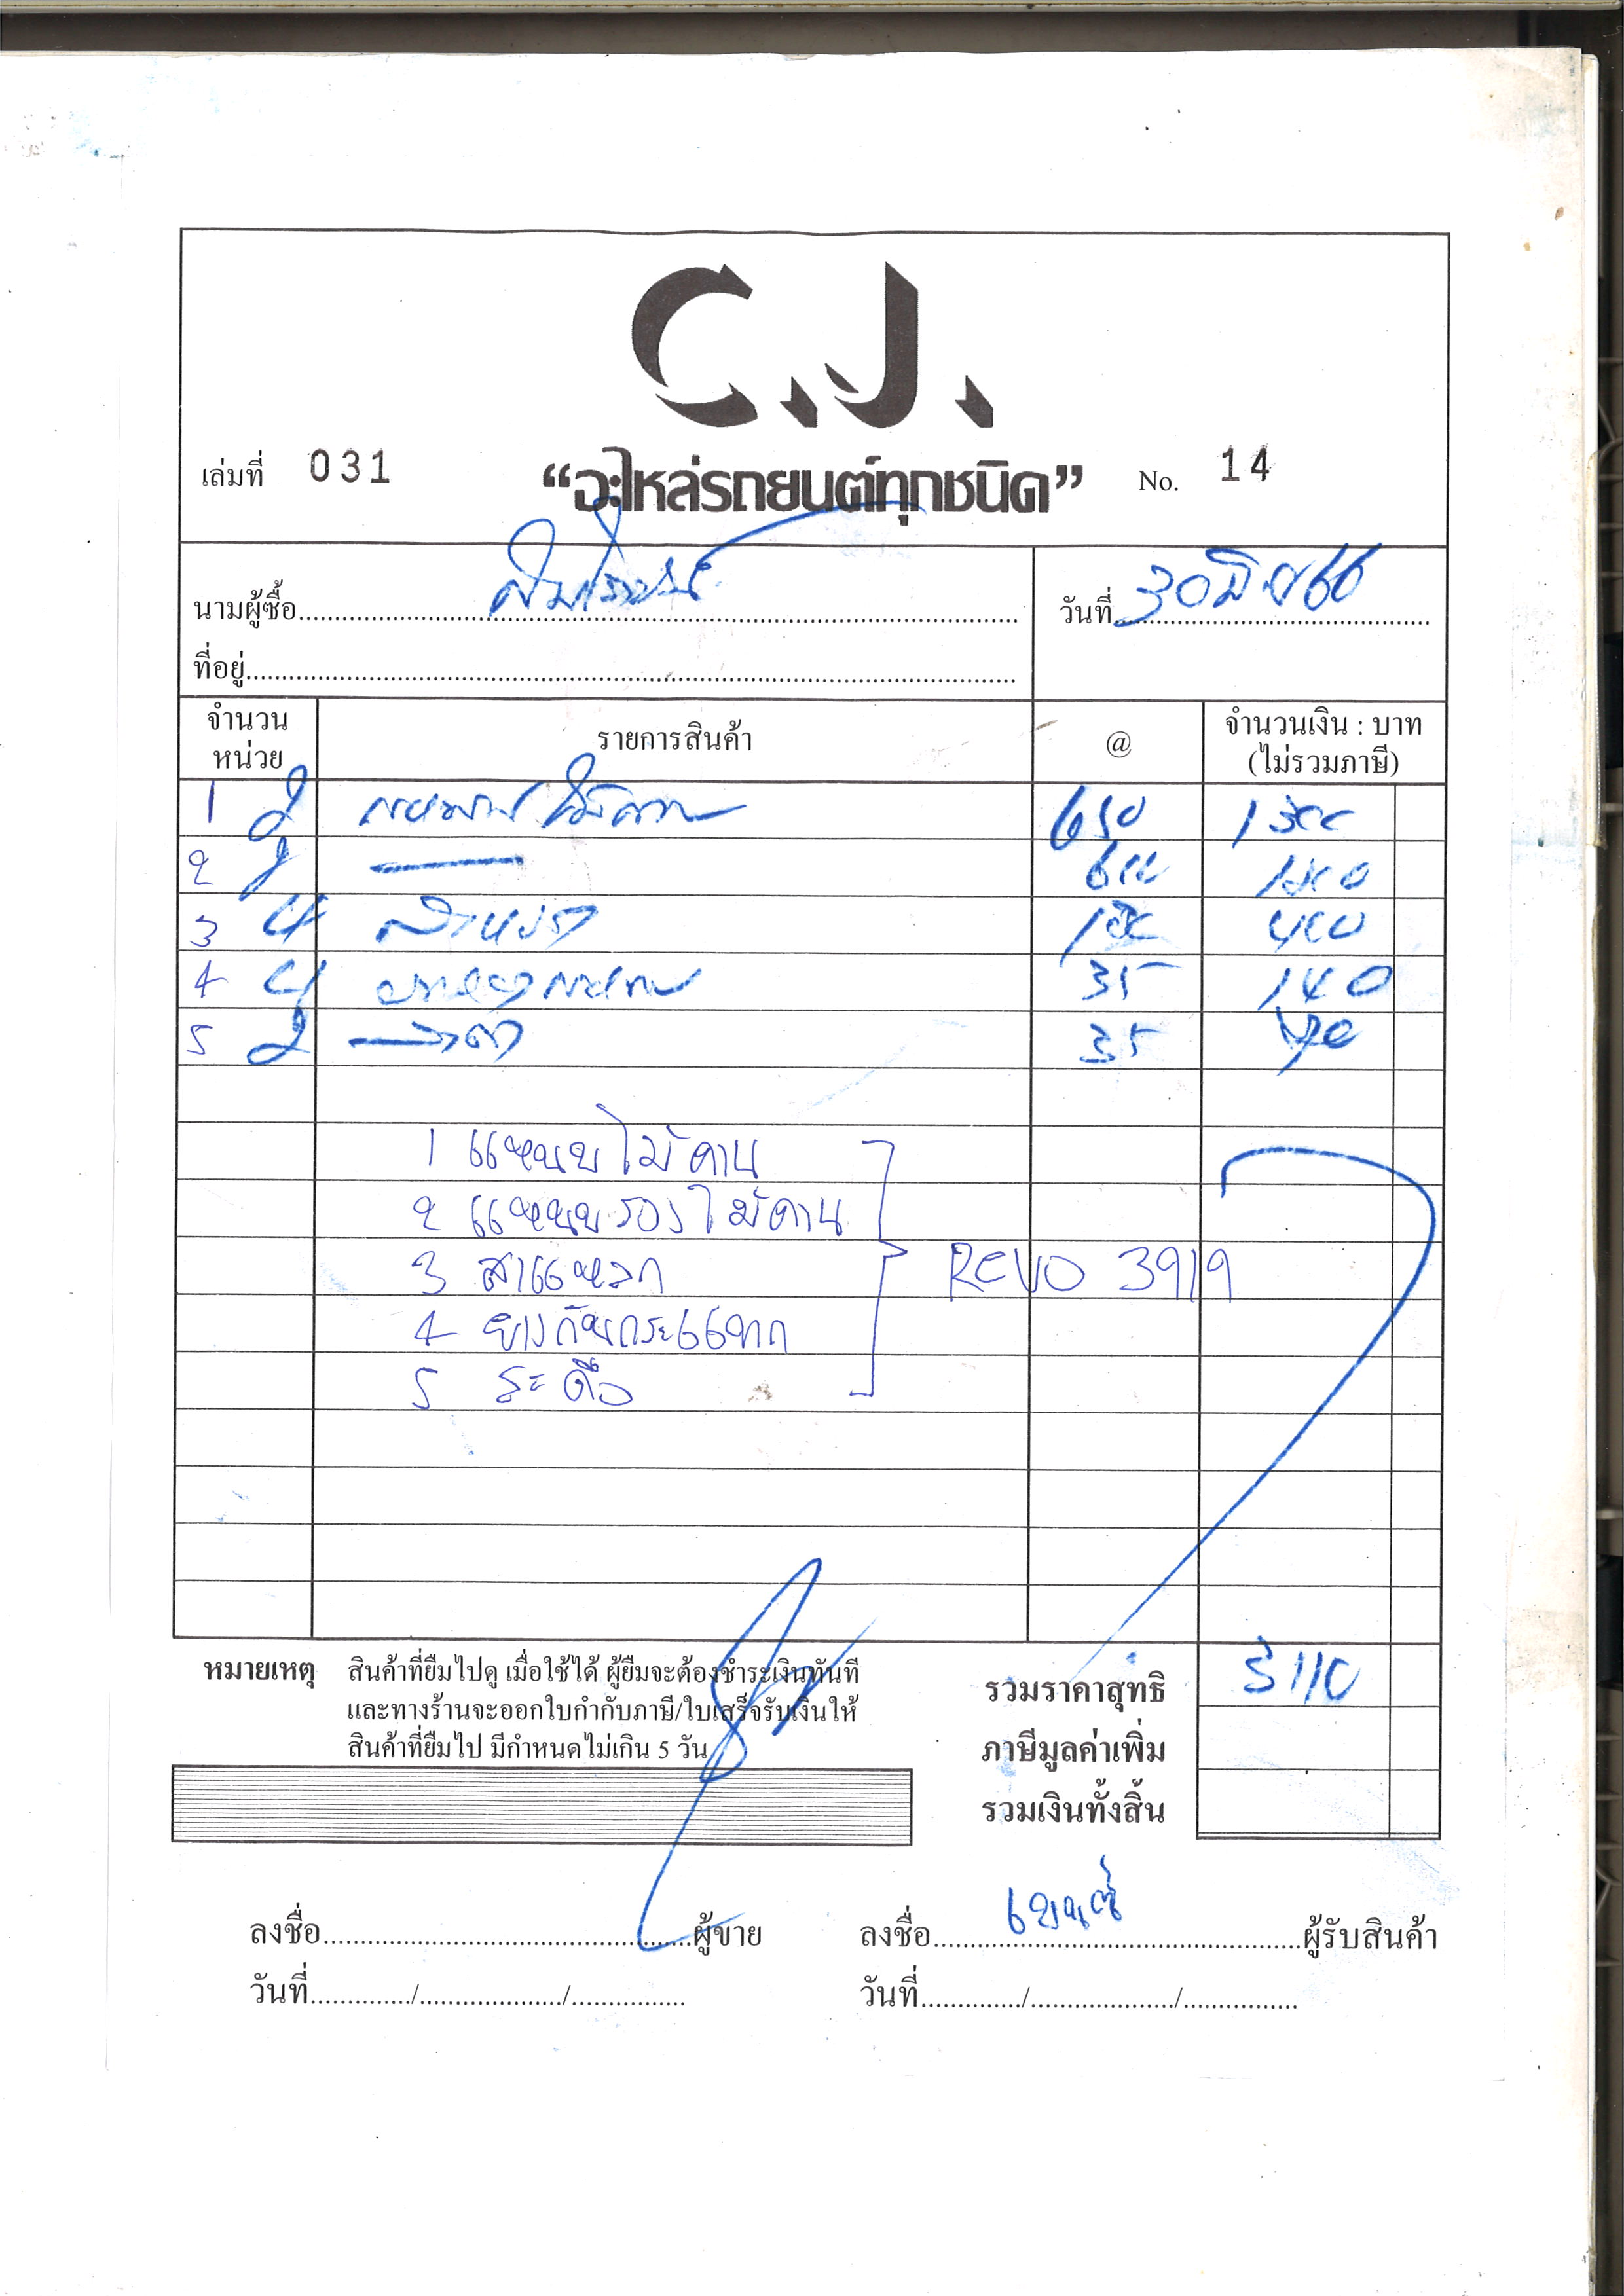 C.J.
เล่มที่ 031 “อะไหล่รถยนต์ทุกชนิด” No. 14
นามผู้ซื้อ
วันที่ 30 มิ.ย 66
ที่อยู่
จำนวน
หน่วย
รายการสินค้า
@
จำนวนเงิน : บาท
(ไม่รวมภาษี)
1 2 650 1300
2 2 600 1200
3 4 100 400
4 4 35 140
5 2 35 70
1 แหนบไม้คาน
2 แหนบรองไม้คาน
3 สาแหลก
4 ยางกันกระแทก
5 สะดือ
REVO 3919
หมายเหตุ สินค้าที่ยืมไปดู เมื่อใช้ได้ ผู้ยืมจะต้องชำระเงินทันที
และทางร้านจะออกใบกำกับภาษี/ใบเสร็จรับเงินให้
สินค้าที่ยืมไป มีกำหนดไม่เกิน 5 วัน
รวมราคาสุทธิ 3110
ภาษีมูลค่าเพิ่ม
รวมเงินทั้งสิ้น
ลงชื่อ ผู้ขาย
ลงชื่อ ผู้รับสินค้า
วันที่ / /
วันที่ / /